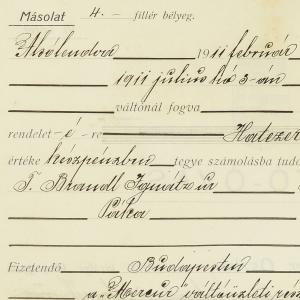 Másolat 4.- fillér bélyeg.
Alsólendva 1911 február
1911 julius hó 3-án
váltónál fogva
rendelet -é- re Hatezer
értéke készpénzben tegye számolásba tudo
T. Brandl Ignátz ur
Páka
Fizetendő Budapesten
a "Mercur" váltóüzleti rész